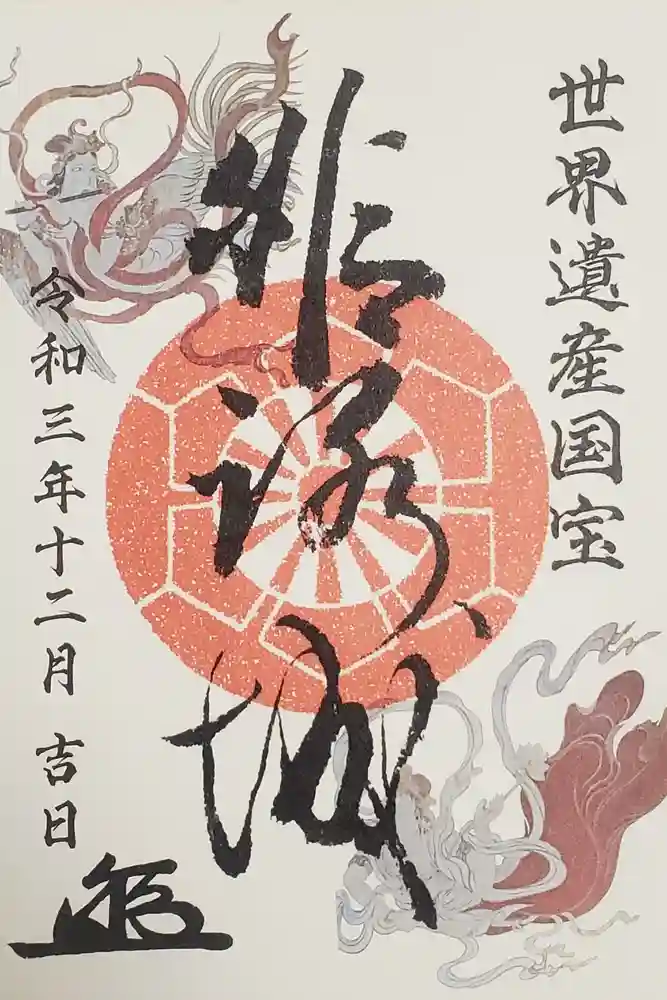 世界遺産国宝
姫路城
令和三年十二月 吉日